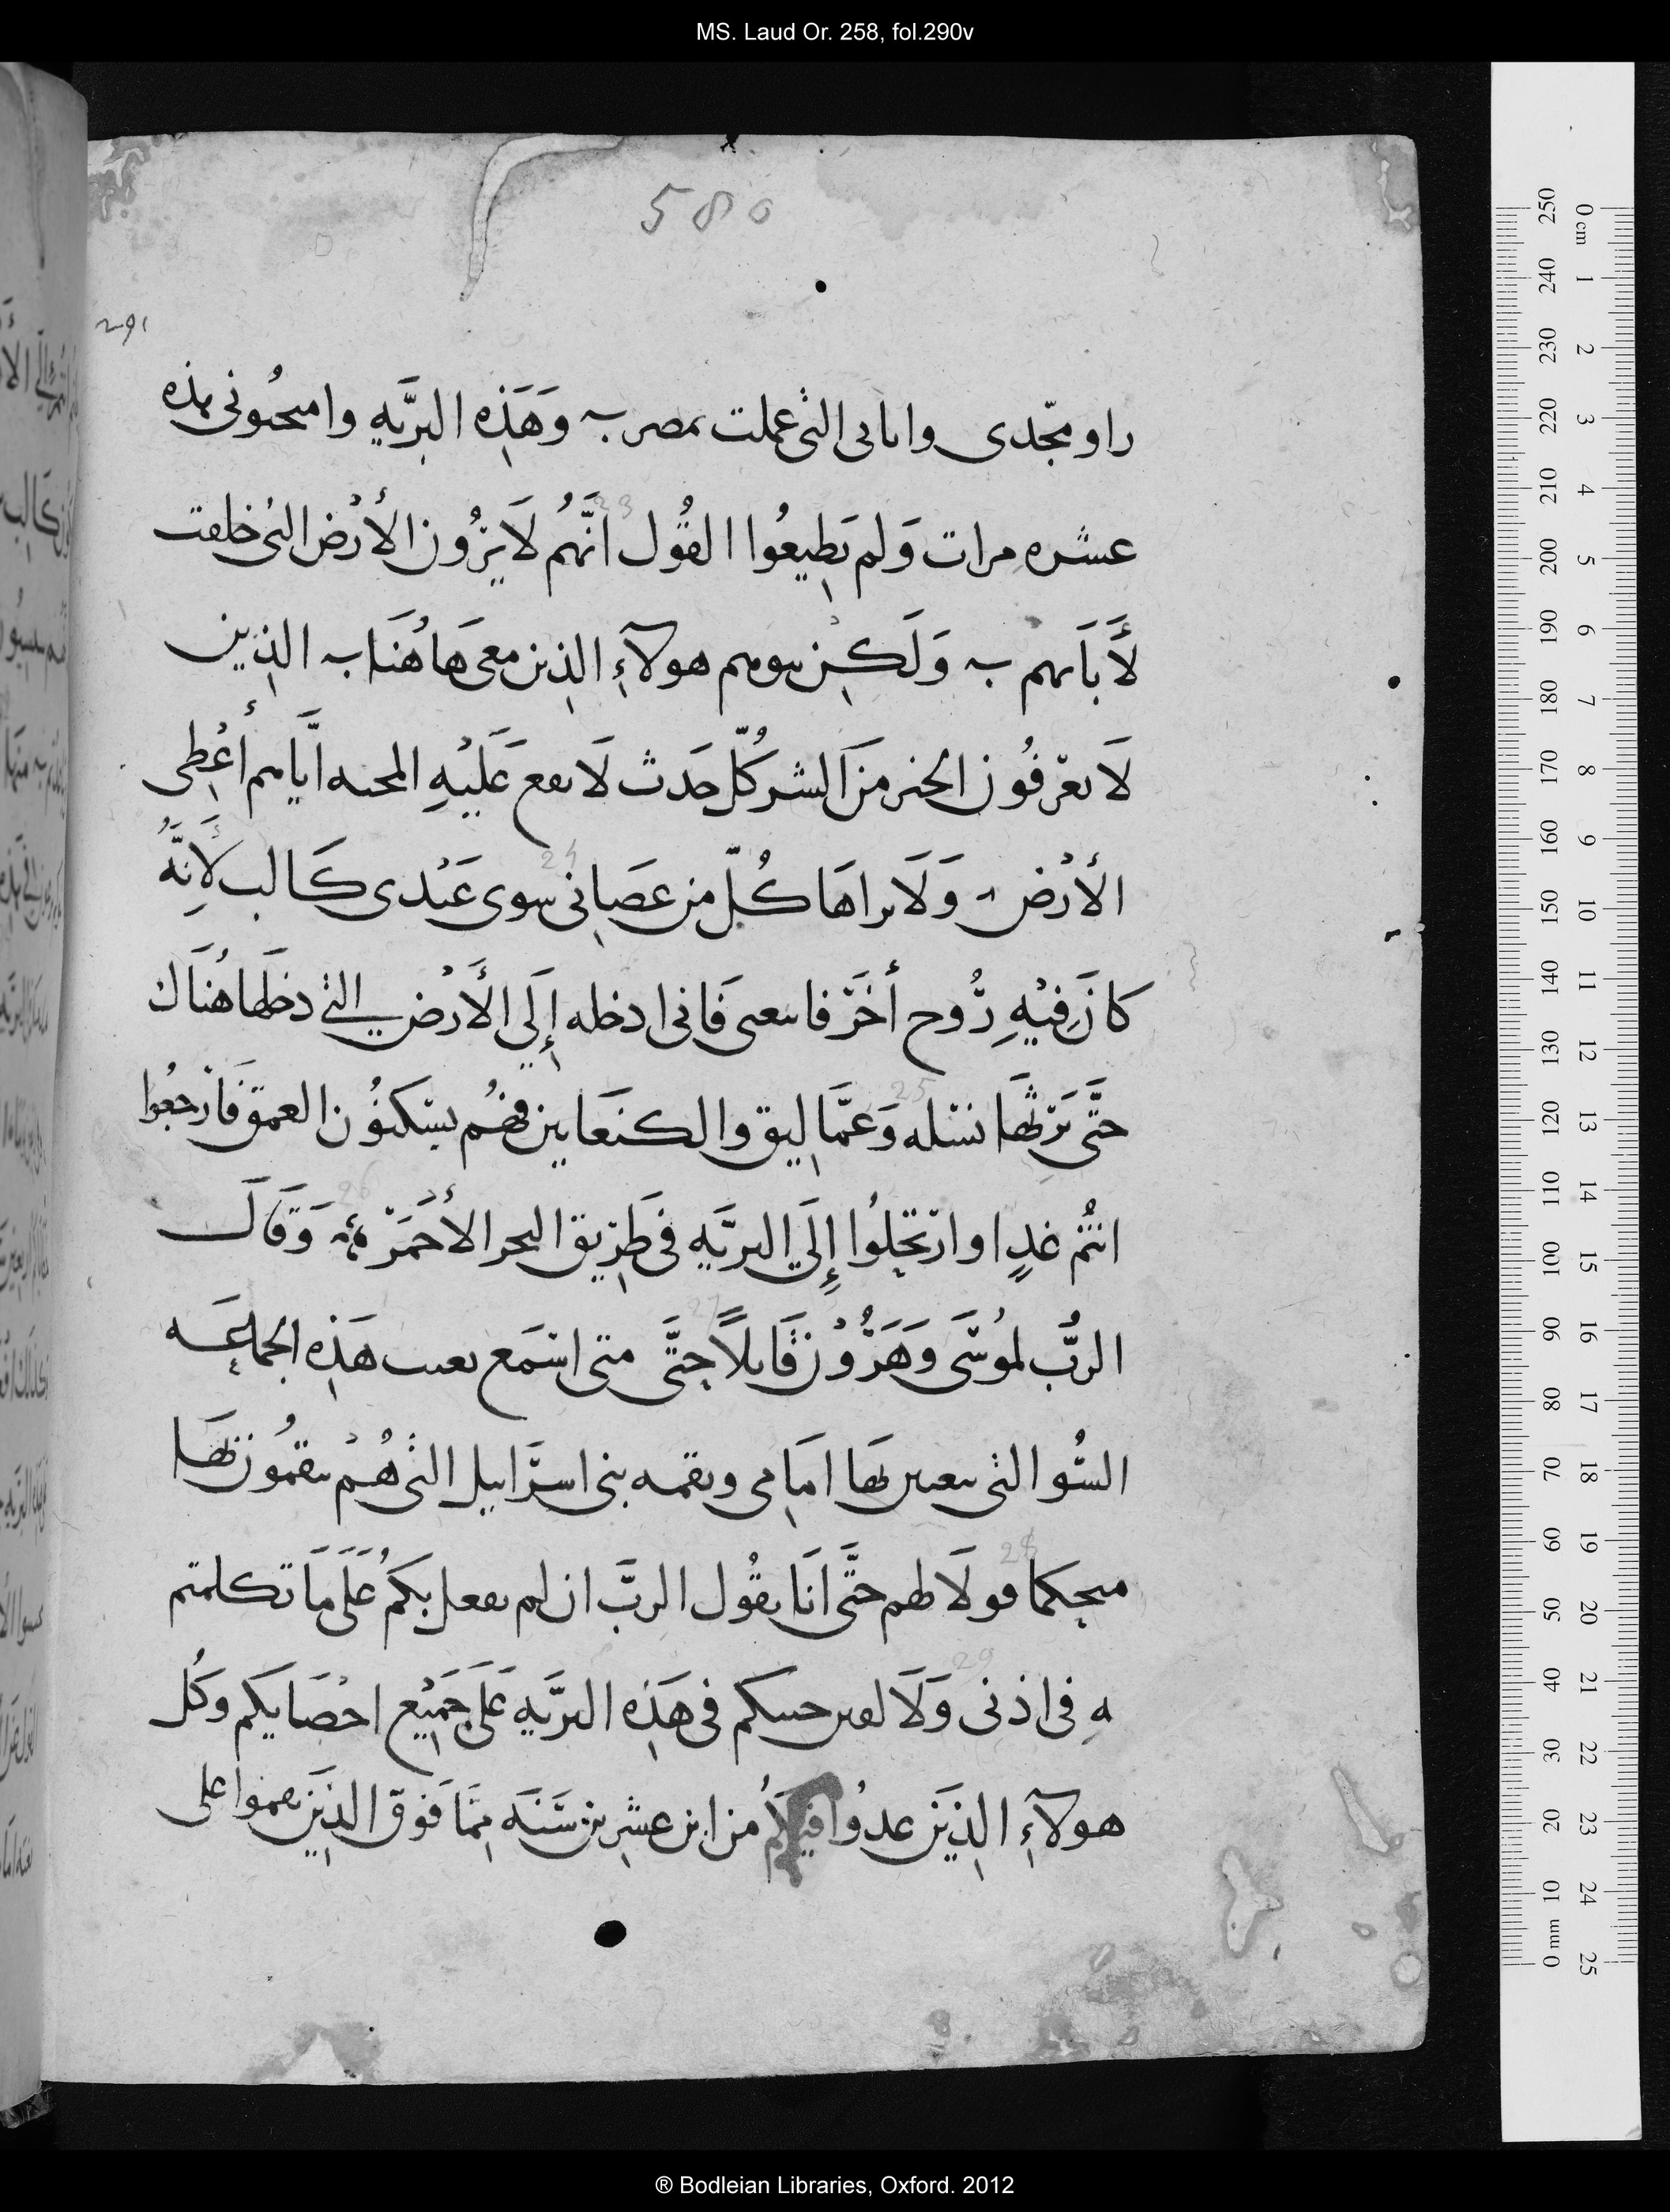 MS. Laud Or. 258, fol.290v
580
291
راو مجدى واياتى التى عملت بمصر وَهَذِه البرِّيه وامتحنونى هذه
عشره مرات وَلم يَطيعُوا القُول انَّهُم لَا يَرُون الأرْض التى خلفت
لأَبَآيهم وَلَكِن بنوهم هولآءِ الذِين معى هَاهُنَا الذِين
لَا يعْرفُون الخير مِن الشر كُلّ حَدث لَا يقع عَلَيْهِ المحنه ايَّاهم أُعْطِى
الأرْض وَلَا يراهَا كُلّ من عصَانى سوى عَبْدى كَالب لأَنَّهُ
كانَ فِيْهِ رُوح أخَر فاتبعى فَانى ادخله إلَي الأَرْض التى دخلها هُنَاك
حتَّى يَرثهَا نسله وَعمَّاليق والكنعَانين فهُم يسْكنُون العمق فَارجعُوا
انتُم غدٍا وارْتحِلُوا إلَي البريَّه فى طِرْيق البحر الأحْمَرْ وَقَال
الربّ لمُوسَى وَهَرُوْن قَايلاً حتَّى متى اسْمَع تعبـ هَذِه الجماعَه
السُو التى بها امَامى ونقمه بنى اسرَاييل التى هُمْ ينقمُون بهَا
قولَا لهم حتَّى انَا يقُول الربّ ان لم نفعل بكمُ عَلَى مَا تكلمتم
بهِ فى اذنى وَلَا جسكم فى هَذِه البريَّهِ عَلَى جَمِيْع احْصَايكم وكُل
هولآءِ الذِينَ عدوُا فيكمُ من ابن عشرِين سَنَه مِمَّا فَوق الذِينَ على
29
28
27
26
25
24
23
250 240 230 220 210 200 190 180 170 160 150 140 130 120 110 100 90 80 70 60 50 40 30 20 10 0 mm
0 cm 1 2 3 4 5 6 7 8 9 10 11 12 13 14 15 16 17 18 19 20 21 22 23 24 25
® Bodleian Libraries, Oxford. 2012